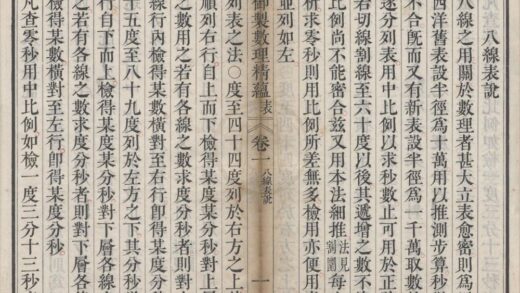 八線表說
八線之用關於數理者甚大立表愈密則為
西洋舊表設半徑為十萬用以推測步算秒
不合旣而又有新表設半徑為一千萬取數
遂分列表中用比例以求秒數止可用於正
若切線割線至六十度以後其遞增之數不
比例尚不能密合茲又用本法細推法見割圜每
析求零秒則用比例所差無多檢用亦便用
並列如左
御製數理精蘊表 卷一 八線表說 一
列表之法○度至四十四度列於右方之上
順列右行自上而下檢得某度某分秒對上
之數用之若有各線之數求度分秒者則對
線行內檢得某數橫對至右行卽得某度分
十五度至八十九度列於左方之下其分秒
行自下而上檢得某度某分秒對下層各線
之若有各線之數求度分秒者則對下層各
檢得某數橫對至左行卽得某度分秒
凡查零秒用中比例如檢一度三分十三秒